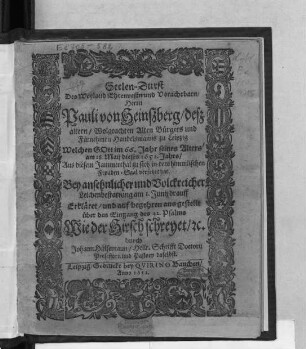 Seelen-Durst
Des Weyland Ehrenvesten und Vorachtbarn
Herrn
Pauli von Heinßberg / deß
ältern / Wolgeachten Alten Bürgers und
Fürnehmen Handelsmanns zu Leipzig
Welchen GOtt im 66. Jahr seines Alters
am 28. Maij dieses 1652. Jahrs /
Aus diesem Jammerthal zu sich in den himmlischen
Freuden-Saal versetzet hat.
Bey ansehnlicher und Volckreicher
Leichenbestattung am 1. Junij drauff
Erkläret / und auf begehren aus gestellt
über den Eingang des 42. Psalms
Wie der Hirsch schreyet / ꝛc.
durch
Johann Hülsemann / Heil. Schrifft Doctorn
Professorn und Pastorn daselbst.
Leipzig / Gedruckt bey QVIRINO Bauchen /
Anno 1652.